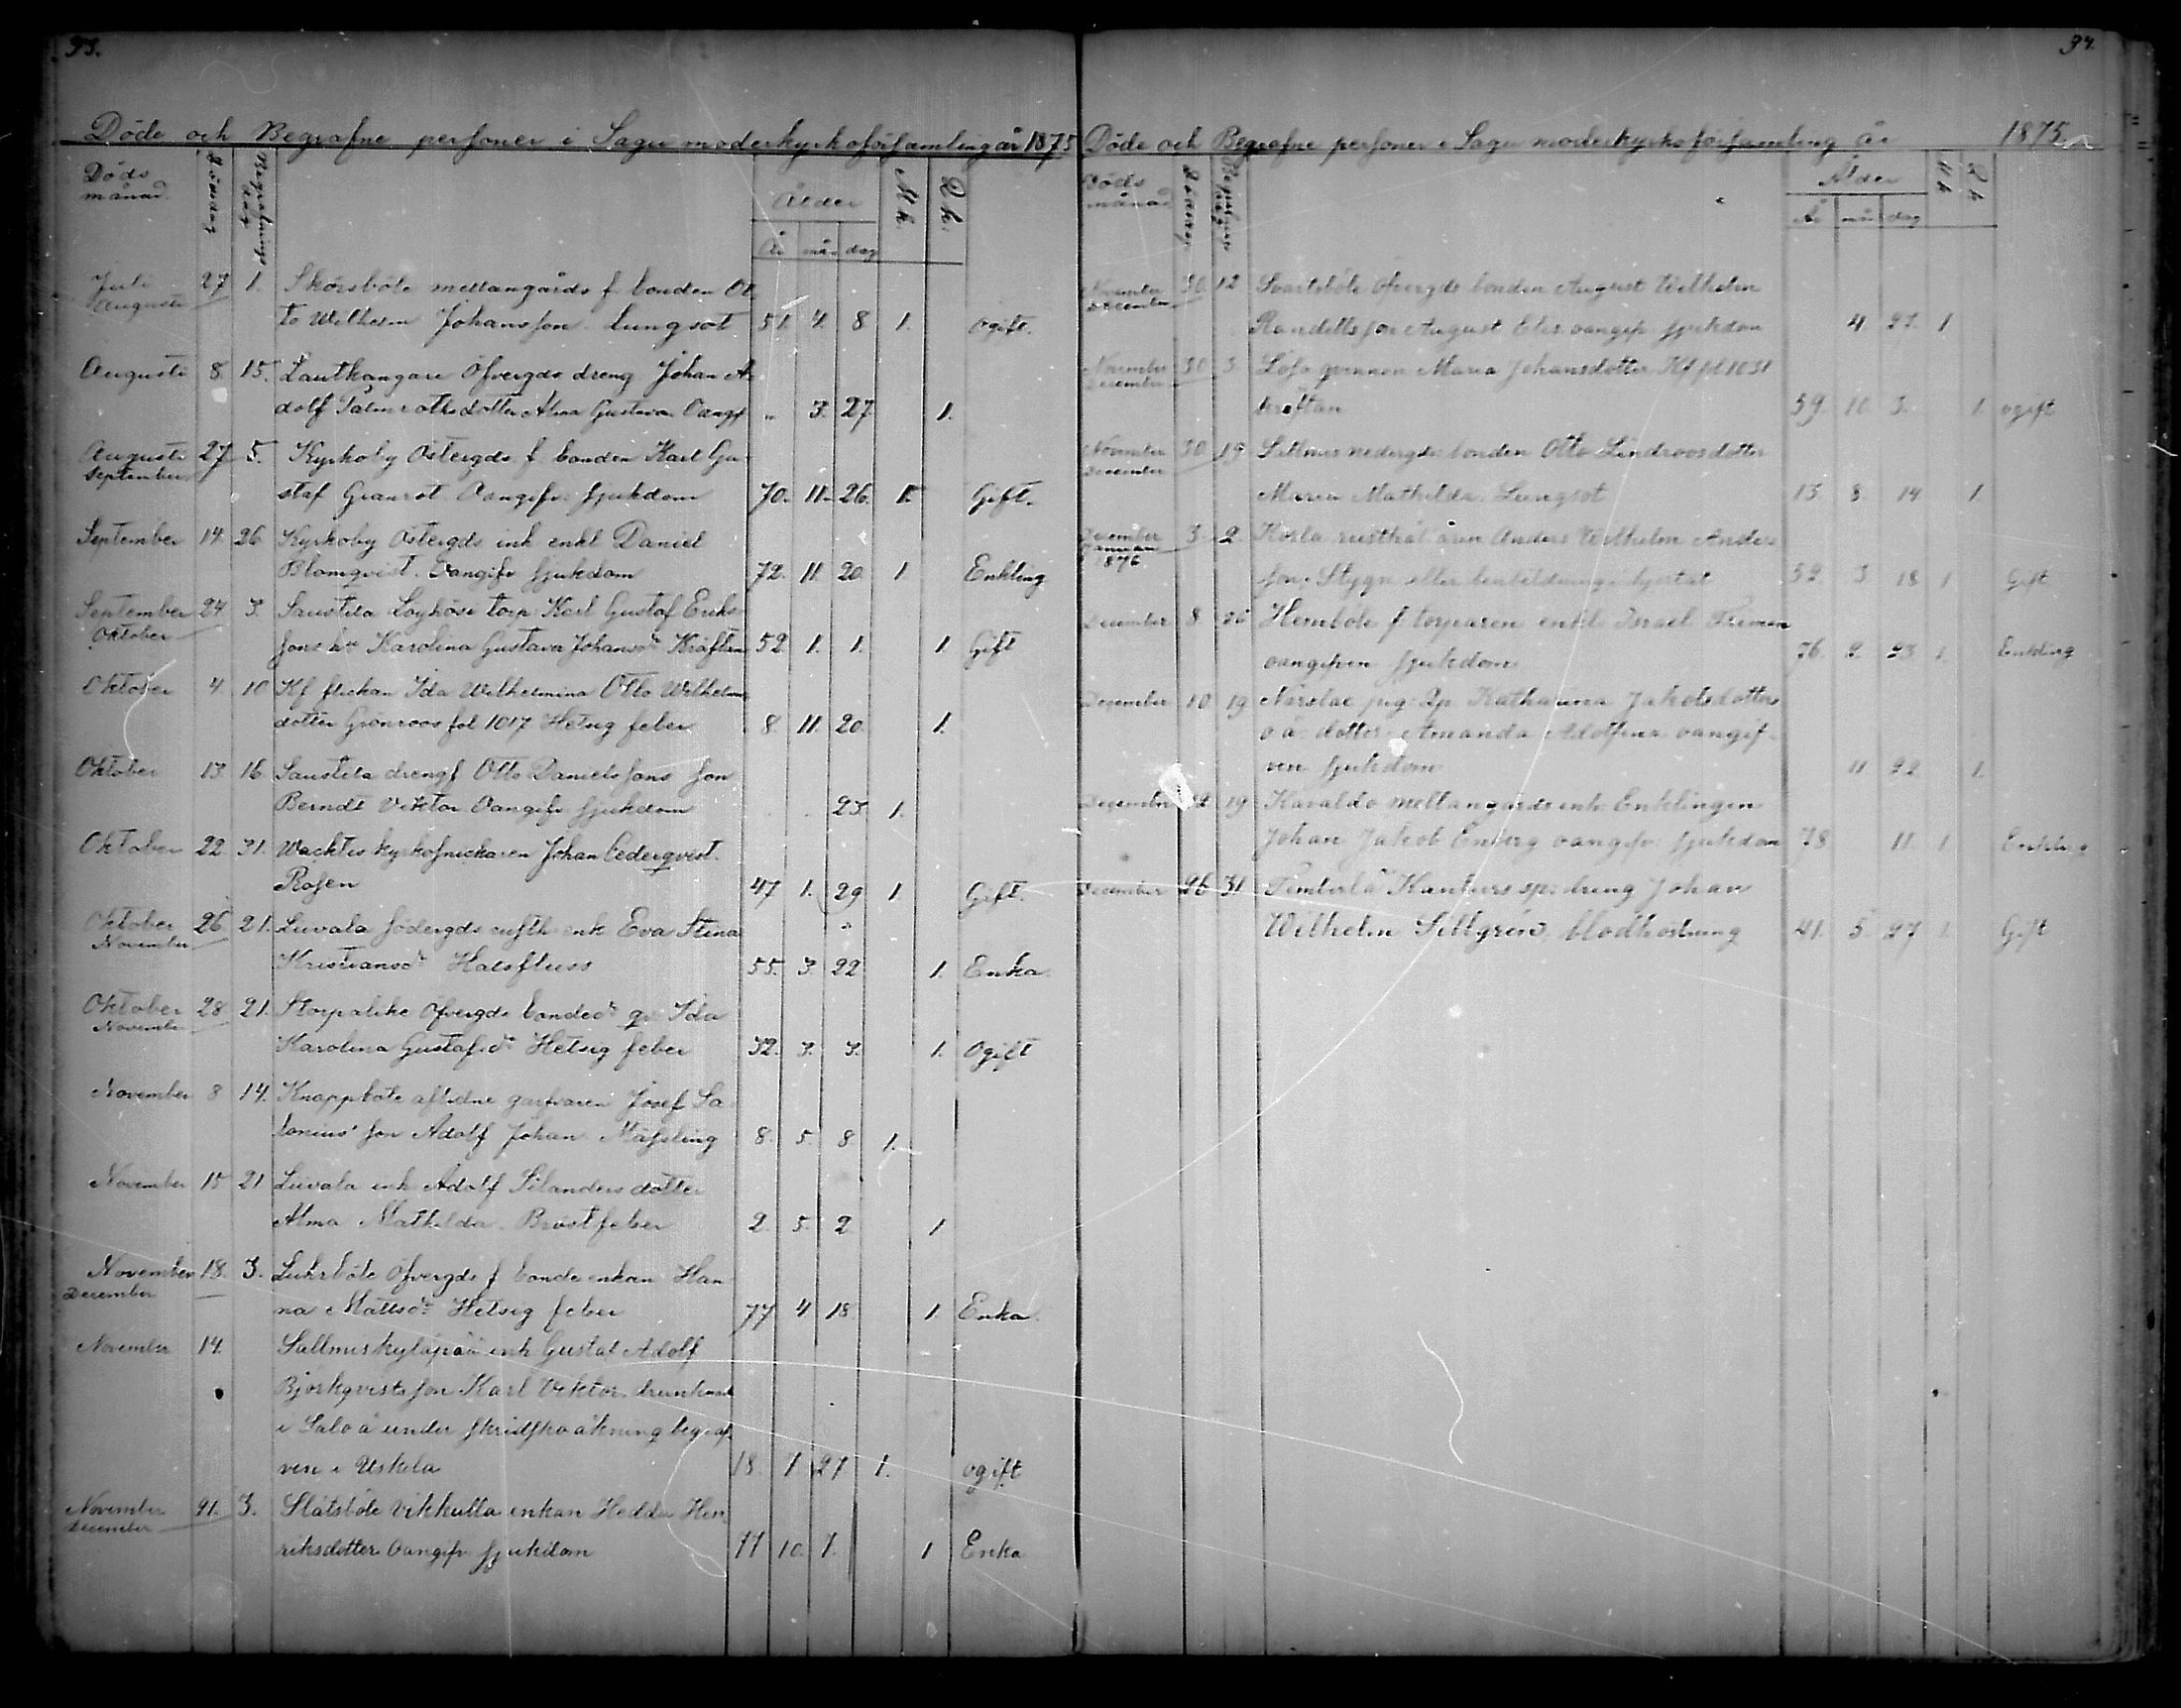 93.
Döde och Begrafne personer i Sagu moderkyrkoförsamling år 1875
Döds månad Dödsdag Begrafnings dag Ålder År mån dag M.k. Q.k.
Juli 27 1. Skörsböle mellangårds f. bonden Ot
Augusti to Wilhelm Johansson Lungsot 51. 4. 8 1. ogift.
Augusti 8. 15. Lautkangare Öfvergds dreng Johan A
dolf Palmroths dotter Alma Gustava Oangf „ 3. 27 1.
Augusti 27 5. Kyrkoby Östergds f. bonden Karl Gu
September staf Granrot Oangifv. sjukdom 70. 11. 26. 1. Gift.
September 14. 26 Kyrkoby Östergds inh enkl Daniel
Blomqvist. Oangifv sjukdom 72. 11. 20. 1. Enkling
September 24 3. Saustila Löyhöse torp Karl Gustaf Eriks
Oktober sons hu Karolina Gustava Johansdr Kräftan 52. 1. 1. 1. Gift
Oktober 4. 10 Kf flickan Ida Wilhelmina Otto Wilhelms
dotter Grönroos fol 1017 Hetsig feber 8. 11. 20. 1.
Oktober 13. 16. Saustila drengf Otto Danielssons son
Berndt Viktor Oangifv sjukdom 23. 1.
Oktober 22 31. Wachtes kyrkosnickaren Johan Cederqvist.
Rosen 47 1. 29 1 Gift.
Oktober 26 21. Liuvala Södergds rusth enk Eva Stina
November Kristiansdr Halsfluss 55. 3. 22 1. Enka.
Oktober 28 21. Storpahke Öfvergds bondedr qv. Ida
November Karolina Gustafsdr Hetsig feber 32. 3. 3. 1. Ogift
November 8 14. Knappböle aflidne garfvaren Josef Sa
lonius' son Adolf Johan Mässling 8. 5. 8. 1.
November 15 21 Liuvala inh Adolf Silanders dotter
Alma Mathilda. Bröstfeber 2. 5. 2 1
November 18. 3. Lukrböle Öfvergds f. bonde enkan Han
December na Mattsdr Hetsig feber 77 4 18 1. Enka.
November 14. Sallmiskyläpää inh Gustaf Adolf
Björkqvists son Karl Viktor. drunknad
i Salo å under skridskoåkning begraf
ven i Uskela 18. 7. 27 1. ogift
November 21. 3. Slätsböle Vikkulla enkan Hedda Hen
December riksdotter Oangifv sjukdom 77 10. 7. 1 Enka
94.
Döde och Begrafne personer i Sagu moderkyrkoförsamling år 1875
Döds månad Dödsdag Begrafnings dag Ålder År mån dag M.k Q.k
November 30 12 Svartsböle Öfvergds bonden August Wilhelm
December Randells son August Elis. oangifv. sjukdom 4. 27. 1
November 30 3 Lösa qvinnan Maria Johansdotter Kf fol 1031
December kräftan 59. 10. 3. 1. ogift
November 30 19 Sallmis nedergds bonden Otto Lindroos dotter
December Maria Mathilda. Lungsot 13. 8. 14. 1.
December 3. 2. Korla rusthållaren Anders Wilhelm Anders
Januari 1876 son. Stygn eller inbildning i hjertat 52. 3 18 1 Gift
December 8 26 Hemböle f. torparen enkl. Israel Friman
oangifven sjukdom 76. 2. 23 1. Enkling
December 10 19 Närslae pig. Katharina Jakobsdotters
o.ä. dotter Amanda Adolfina oangif
ven sjukdom 11 22 1.
December 12 19 Karaldo mellangårds inh. Enklingen
Johan Jakob Enberg oangifv. sjukdom 78 11. 1 Enkling
December 26 31 Timberla Kankurs sp: dreng Johan
Wilhelm Sillgren. blodhostning 41. 5. 27 1. Gift